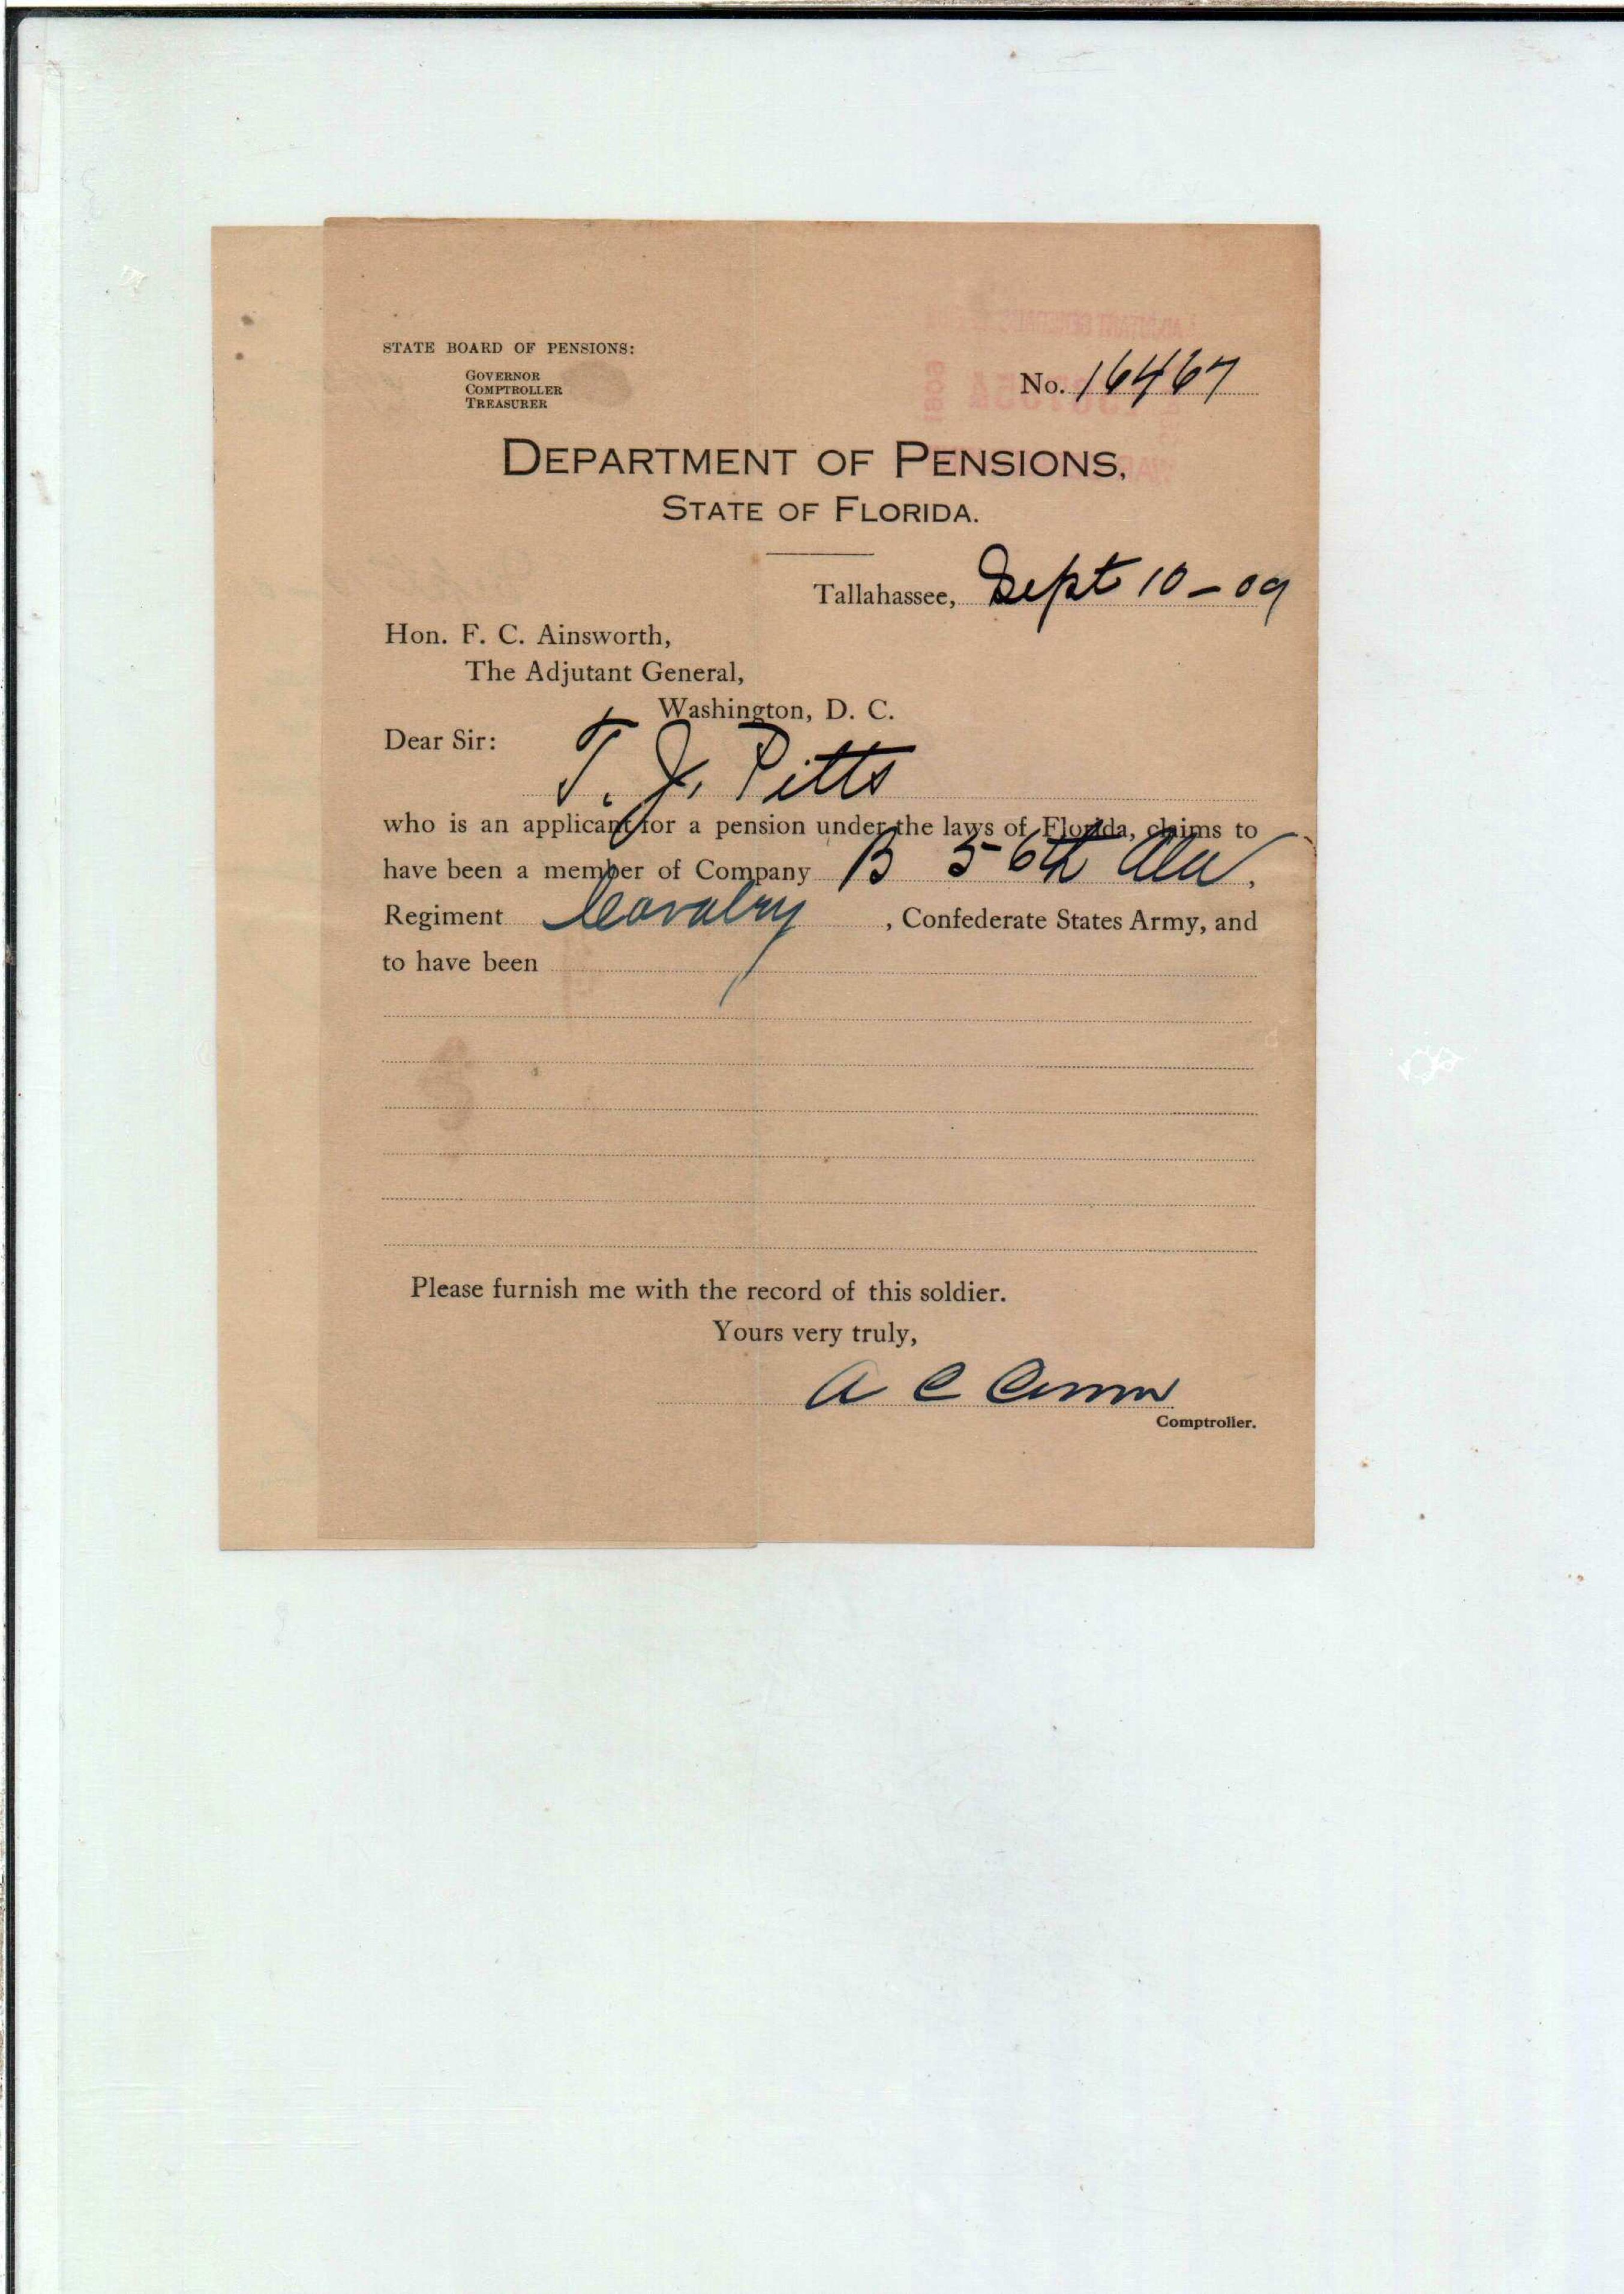 STATE BOARD OF PENSIONS:
GOVERNOR
COMPTROLLER
TREASURER
No. 16467
DEPARTMENT OF PENSIONS,
STATE OF FLORIDA.
Tallahassee, Sept 10-09
Hon. F. C. Ainsworth,
The Adjutant General,
Washington, D. C.
Dear Sir:
T. J. Pitts
who is an applicant for a pension under the laws of Florida, claims to
have been a member of Company B 56th Ala.
Regiment Cavalry, Confederate States Army, and
to have been
Please furnish me with the record of this soldier.
Yours very truly,
A C Croom
Comptroller.